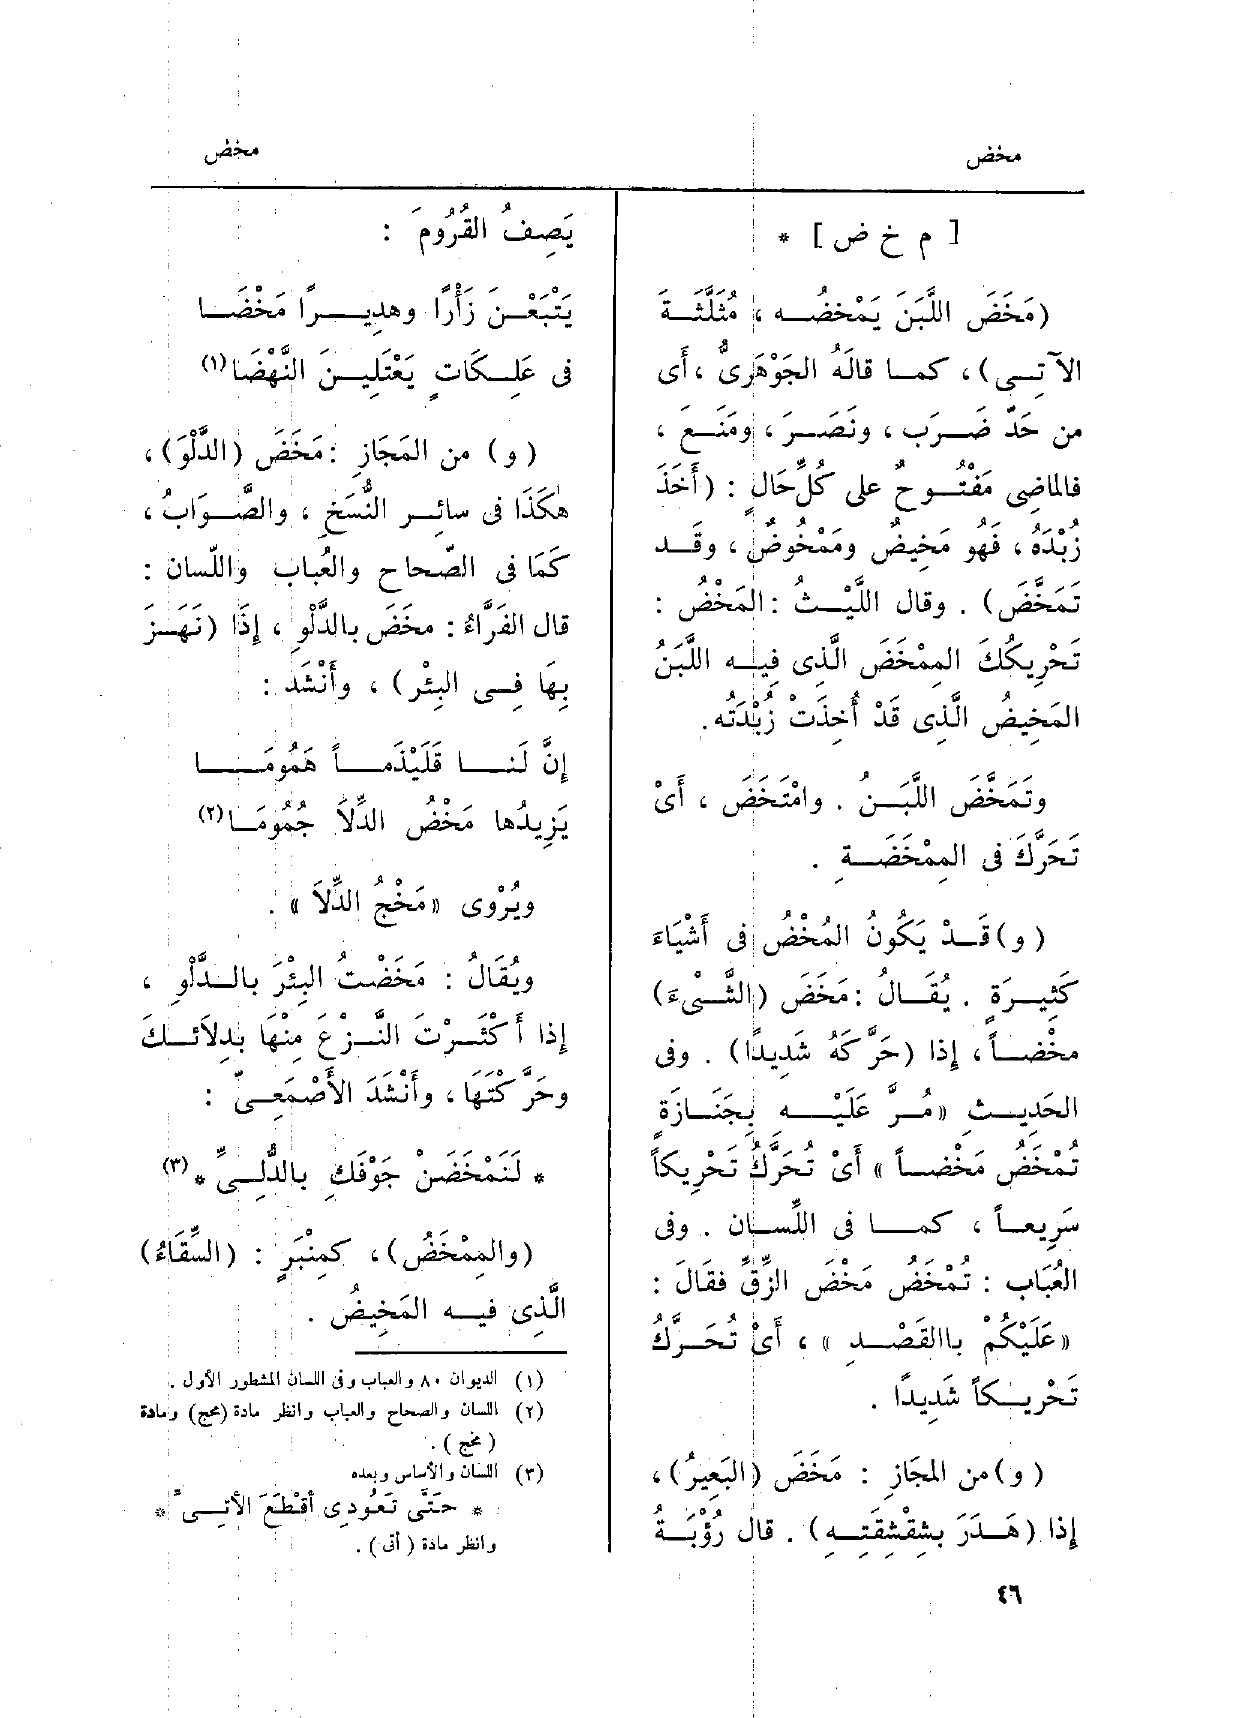 مخض
مخض
[ م خ ض ] *
(مَخَضَ اللَّبَنَ يَمْخضُــه ، مُثَلَّثَــةَ
الآتــى) ، كمــا قالَهُ الجَوْهَرِىُّ ، أَى
من حَدِّ ضَــرَب ، ونَصَــرَ ، ومَنَــع ،
فالماضِى مَفْتُــوحٌ على كُلِّ حَالٍ : (أَخَذَ
زُبْدَهُ ، فَهُو مَخِيضٌ ومَمْخُوضٌ ، وقَــد
تَمَخَّضَ) . وقال اللَّيْــثُ : المَخْضُ :
تَحْرِيكُكَ المِمْخَضَ الَّذِى فِيــه اللَّبَنُ
المَخِيضُ الَّذِى قَدْ أُخِذَتْ زُبْدَتُه .
وتَمَخَّضَ اللَّبَــنُ . وامْتَخَضَ ، أَىْ
تَحَرَّكَ فى المِمْخَضَــةِ .
(و) قَــدْ يَكُونُ المُخْضُ فى أَشْيَاءَ
كَثِيــرَةٍ . يُقَــالُ : مَخَضَ (الشَّــىْءَ)
مخْضــاً ، إِذا (حَرَّكَهُ شَدِيدًا) . وفى
الحَدِيــثِ «مُــرَّ عَلَيْــــهِ بِجَنَــازَةٍ
تُمْخَضُ مَخْضــاً» أَىْ تُحَرَّكُ تَحْرِيكاً
سَرِيعــاً ، كمـــا فى اللِّســان . وفى
العُبَابِ : تُمْخَضُ مَخْضَ الزِّقِّ فقَالَ :
«عَلَيْكُمْ باالقَصْــدِ» ، أَىْ تُحَــرَّكُ
تَحْرِيــكاً شَدِيدًا .
(و) من المجَازِ : مَخَضَ (البَعِيرُ) ،
إِذا (هَــدَرَ بِشِقْشِقَتِــهِ) . قال رُؤْبَــةُ
يَصِفُ القُرُومَ :
يَتْبَعْــنَ زَأْرًا وهَدِيــــرًا مَخْضَــا
فى عَلِــكَاتٍ يَعْتَلِيــنَ النَّهْضَا(١)
(و) من المَجَازِ : مَخَضَ (الدَّلْوَ) ،
هكَذَا فى سائِــر النُّسَخِ ، والصَّــوَابُ ،
كَمَا فى الصّحاحِ والعُبابِ واللّسان :
قال الفَرَّاءُ : مخَضَ بالدَّلْوِ ، إِذَا (نَهَــزَ
بِهَا فِــى البِئْرِ) ، وأَنْشَدَ :
إِنَّ لَنـــا قَلَيْذَمـــاً هَمُومَـــا
يَزِيدُها مَخْضُ الدِّلاَ جُمُومَــا(٢)
ويُرْوى «مَخْجُ الدِّلاَ» .
ويُقَالُ : مَخَضْتُ البِئْرَ بالــدَّلْوِ ،
إِذا أَكْثَــرْتَ النَّــزعَ مِنْهَا بِدِلاَئِــكَ
وحَرَّكْتَهَا ، وأَنْشَدَ الأَصْمَعِــىّ :
* لَنَمْخَضَنْ جَوْفَكِ بالدُّلِــىِّ *(٣)
(والمِمْخَضُ) ، كمِنْبَرٍ : (السِّقَاءُ)
الَّذِى فيــه المَخِيضُ .
(١) الديوان ٨٠ والعباب وفى اللسان المشطور الأول .
(٢) اللسان والصحاح والعباب وانظر مادة (مخج) ومادة
(مخج) .
(٣) اللسان والأساس وبعده
* حَتَّى تَعُودِى أَقْطَعَ الأَتِــىِّ *
وانظر مادة (أتى) .
٤٦